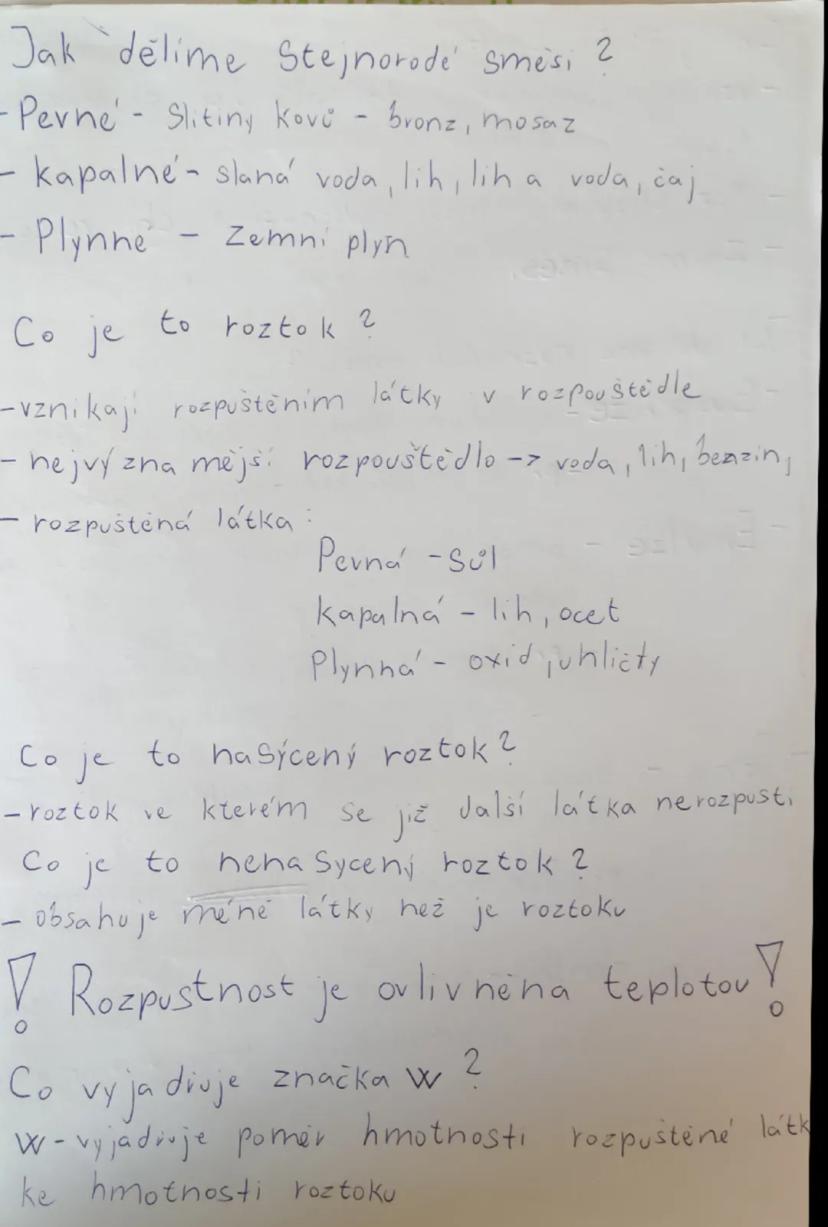 Jak dělíme stejnorodé směsi?
- Pevné - slitiny kovů - bronz, mosaz
- kapalné - slaná voda, lih, lih a voda, čaj
- Plynné - zemní plyn
Co je to roztok?
- vznikají rozpuštěním látky v rozpouštědle
- nejvýznamější rozpouštědlo -> voda, lih, benzin,
- rozpuštěná látka:
Pevná - sůl
kapalná - lih, ocet
Plynná - oxid, uhličťy
Co je to nasycený roztok?
- roztok ve kterém se již další látka nerozpustí
Co je to nenasycený roztok?
- obsahuje méně látky než je roztoku
! Rozpustnost je ovlivněna teplotou!
Co vyjadřuje značka w?
w - vyjadřuje poměr hmotnosti rozpuštěné látk
ke hmotnosti roztoku